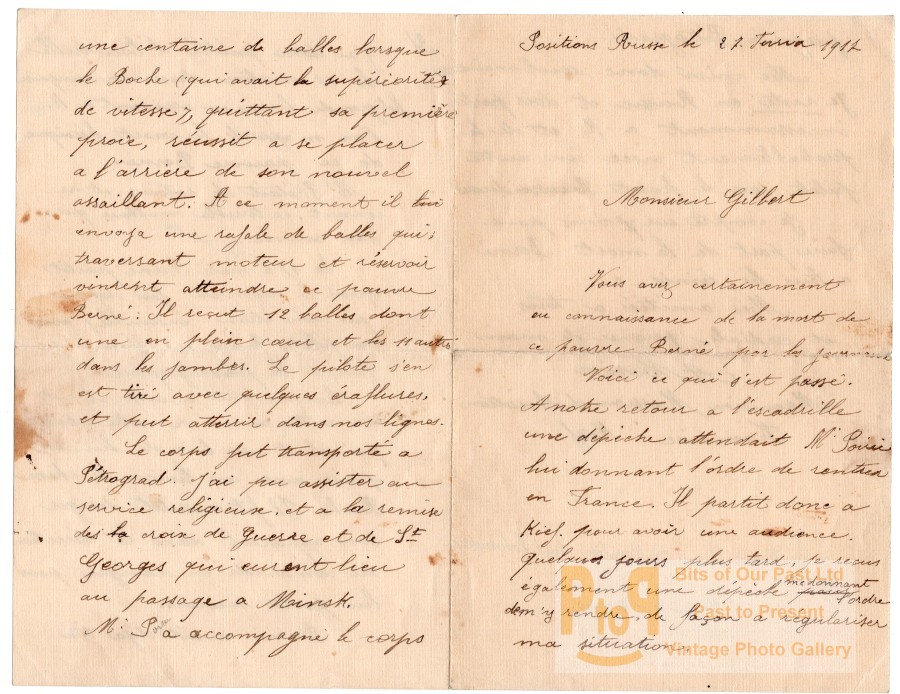 Positions Russe le 27. Fevrier 1917
Monsieur Gilbert
Vous avez certainement
eu connaissance de la mort de
ce pauvre Berné par les journaux
Voici ce qui s'est passé.
A notre retour a l'escadrille
une dépêche attendait Mr
lui donnant l'ordre de rentrer
en France. Il partit donc a
Kief. pour avoir une audience.
Quelques jours plus tard, je reçus
également une dépêche me donnant l'ordre
de m'y rendre, de façon a régulariser
ma situation.
une centaine de balles lorsque
le Boche (qui avait la supériorité
de vitesse), quittant sa première
proie, réussit a se placer
a l'arriére de son nouvel
assaillant. A ce moment il lui
envoya une rafale de balles qui,
traversant moteur et réservoir
vinrent atteindre ce pauvre
Berné. Il reçut 12 balles dont
une en plein cœur et les 11 autres
dans les jambes. Le pilote s'en
est tiré avec quelques éraflures.
et put atterrir dans nos lignes.
Le corps fut transporté a
Pétrograd. J'ai pu assister au
service religieux. et a la remise
des la croix de Guerre et de St
Georges qui eurent lieu
au passage a Minsk.
Mr a accompagné le corps
Bits of Our Past Ltd
Past to Present
Vintage Photo Gallery
PtoP